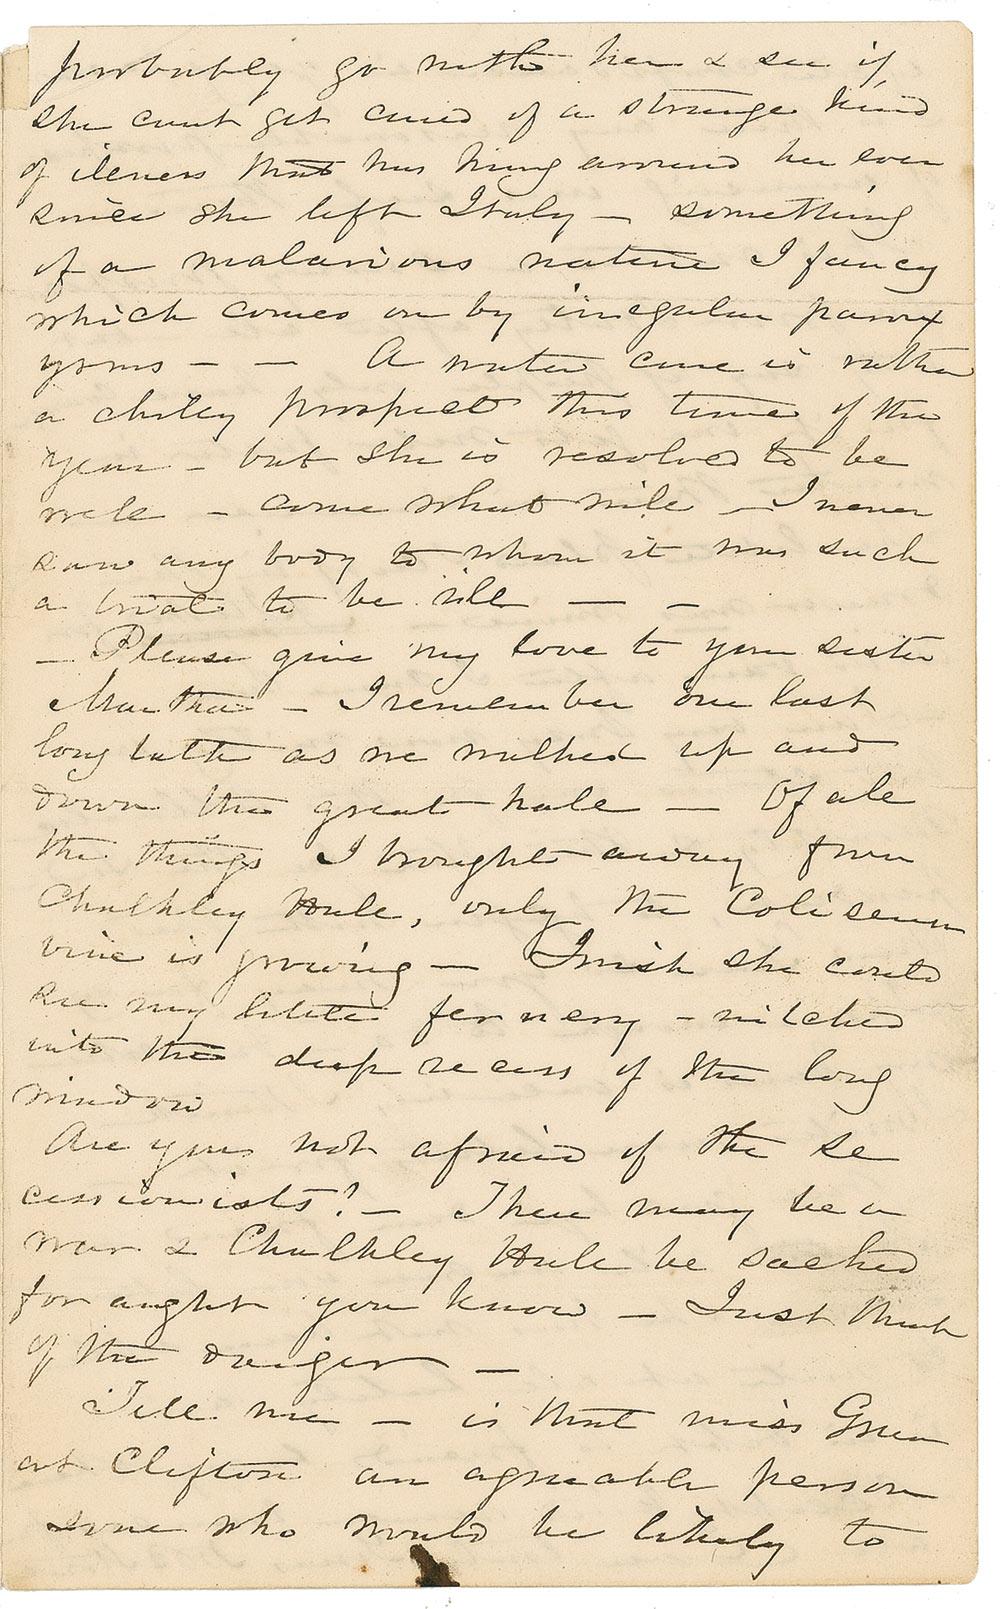 probably go with her & see if
she cant get cured of a strange kind
of ilness that has hung around her ever
since she left Italy — something
of a malarious nature I fancy
which comes on by irregular parox
ysms — — A water cure is rather
a chilly prospect this time of the
year — but she is resolved to be
well — come what will — I never
saw any body to whom it was such
a trial to be ill — —
— Please give my love to your sister
Martha — I remember our last
long talk as we walked up and
down the great hall — Of all
the things I brought away from
Chalkley Hall, only the Coliseum
vine is growing — I wish she could
see my little fernery — nitched
into the deep recess of the long
window
Are you not afraid of the se
cessionists? — There may be a
war & Chalkley Hall be sacked
for aught you know — Just think
of the danger —
Tell me — is that miss Green
at Clifton an agreeable person
some who would be likely to